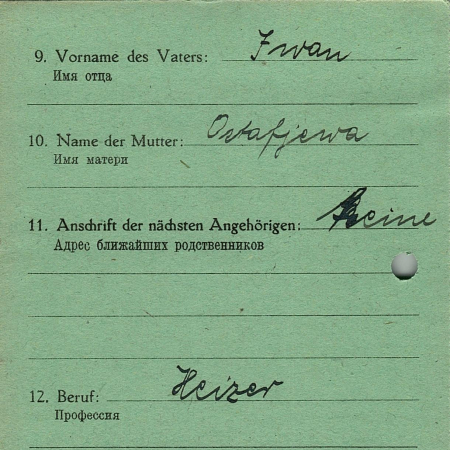 9. Vorname des Vaters: Iwan
Имя отца
10. Name der Mutter: Ostafjewa
Имя матери
11. Anschrift der nächsten Angehörigen: Keine
Адрес ближайших родственников
12. Beruf: Heizer
Профессия